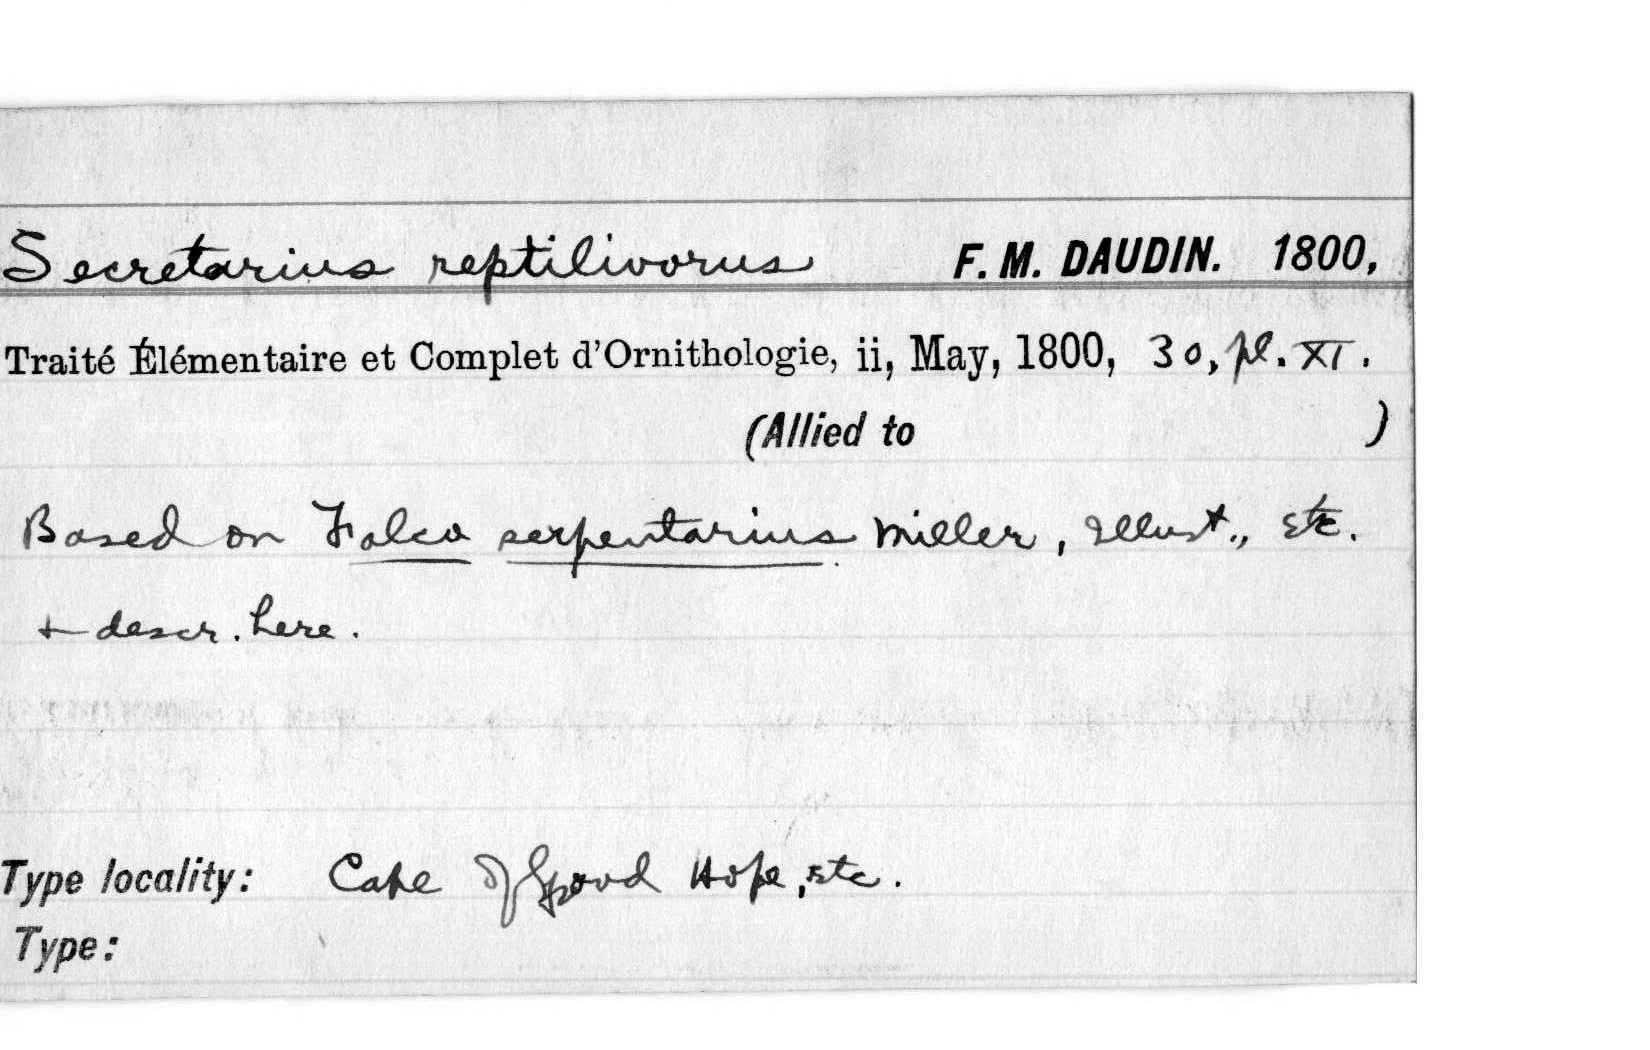 Secretarius reptilivorus F. M. DAUDIN. 1800,
Traité Élémentaire et Complet d'Ornithologie, ii, May, 1800, 30, pl. XI.
(Allied to )
Based on Falco serpentarius Miller, Illust., etc.
+ descr. here.
Type locality: Cape of Good Hope, etc.
Type: